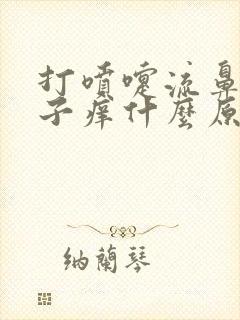 打噴嚏流鼻
子痒什麼原
納蘭琴